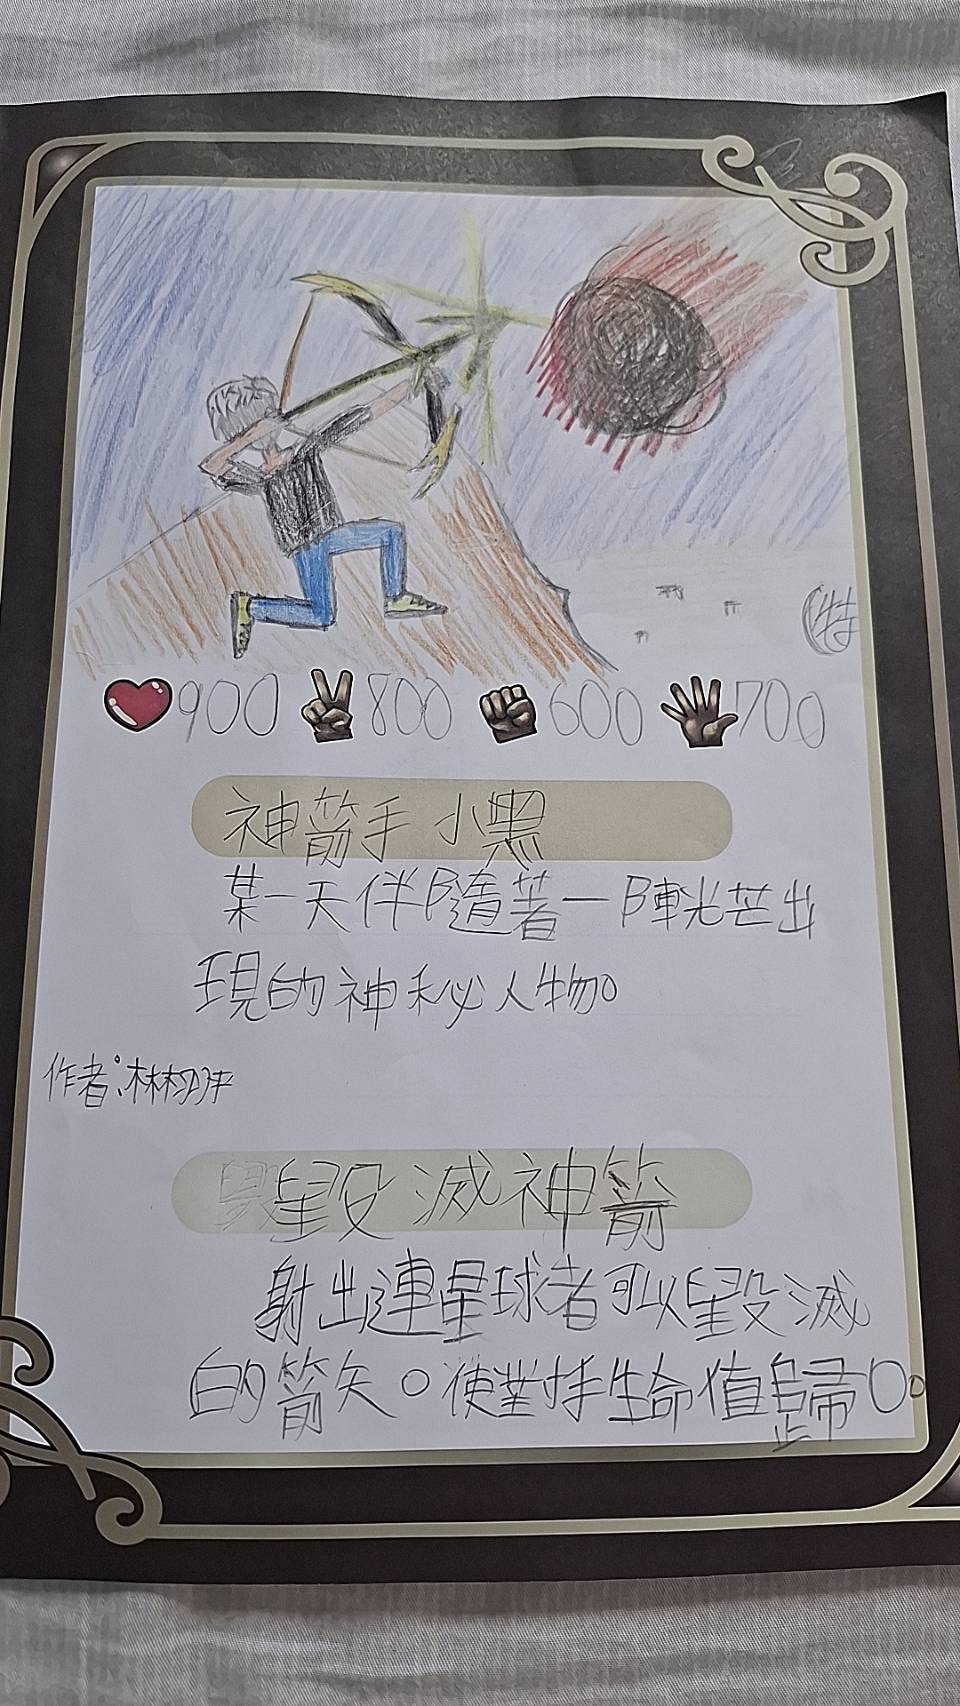 特
900 800 600 700
神箭手 小黑
某一天伴隨著一陣光芒出
現的神秘人物。
作者:林
毀滅神箭
射出連星球者可以毀滅
的箭矢。使對手生命值歸0。